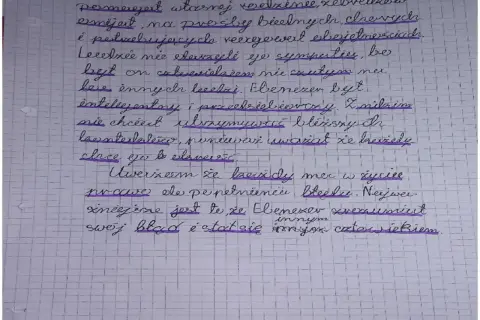 pomagał własnej rodzinie,
na prośby biednych, chorych
i potrzebujących reagował obojętnością.
Ludzie nie darzyli go sympatią, bo
był on człowiekiem nie czułym na
los innych ludzi. Ebenezer był
inteligentny i przedsiębiorczy. Z nikim
nie chciał utrzymywać bliższych
kontaktów, ponieważ uważał że każdy
chce go
Uważam że każdy ma w życiu
prawo do popełnienia błędu. Najwa-
żniejsze jest to, że Ebenezer zrozumiał
swój błąd i stał się innym człowiekiem.